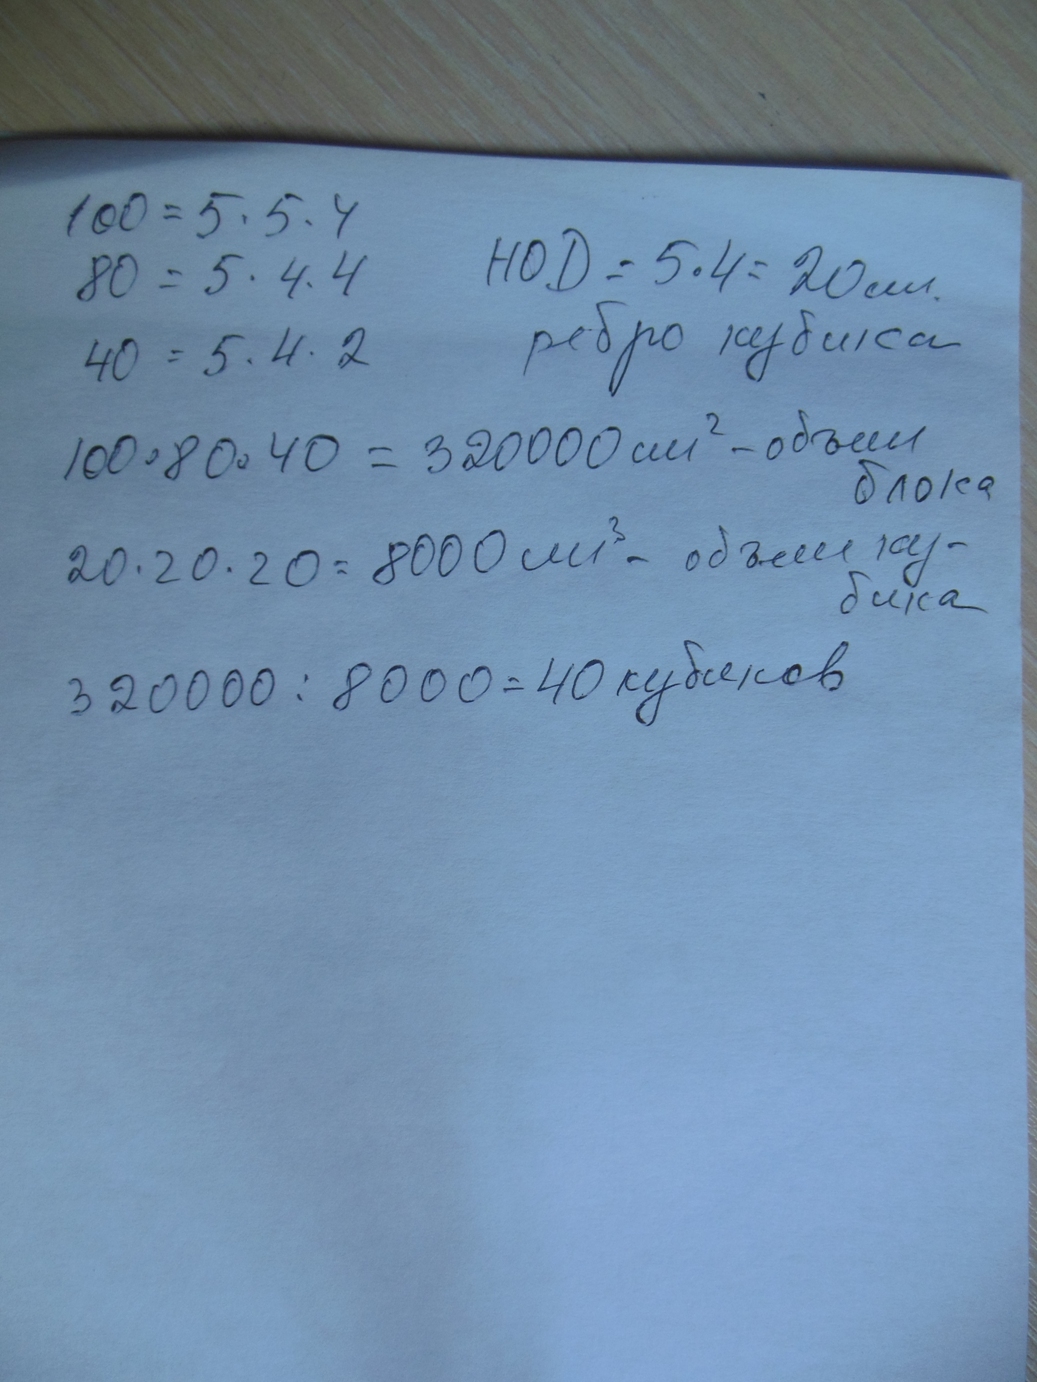 100 = 5 · 5 · 4
80 = 5 · 4 · 4
40 = 5 · 4 · 2
НОD = 5 · 4 = 20 см.
ребро кубика
100 · 80 · 40 = 320000 см² – объем
блока
20 · 20 · 20 = 8000 см³ – объем ку-
бика
320000 : 8000 = 40 кубиков